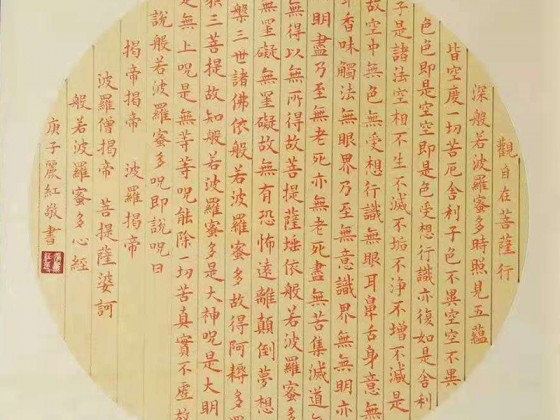 觀自在菩薩行
深般若波羅蜜多時照見五蘊
皆空度一切苦厄舍利子色不異空空不異
色色即是空空即是色受想行識亦復如是舍利
子是諸法空相不生不滅不垢不淨不增不減是
故空中無色無受想行識無眼耳鼻舌身意無
香味觸法無眼界乃至無意識界無無明亦
明盡乃至無老死亦無老死盡無苦集滅道
無得以無所得故菩提薩埵依般若波羅蜜多
無罣礙無罣礙故無有恐怖遠離顛倒夢想
槃三世諸佛依般若波羅蜜多故得阿耨多
三菩提故知般若波羅蜜多是大神呪是大明
是無上呪是無等等呪能除一切苦真實不虛故
說般若波羅蜜多呪即說呪曰
揭帝揭帝 波羅揭帝
波羅僧揭帝 菩提薩婆訶
般若波羅蜜多心經
庚子麗紅敬書